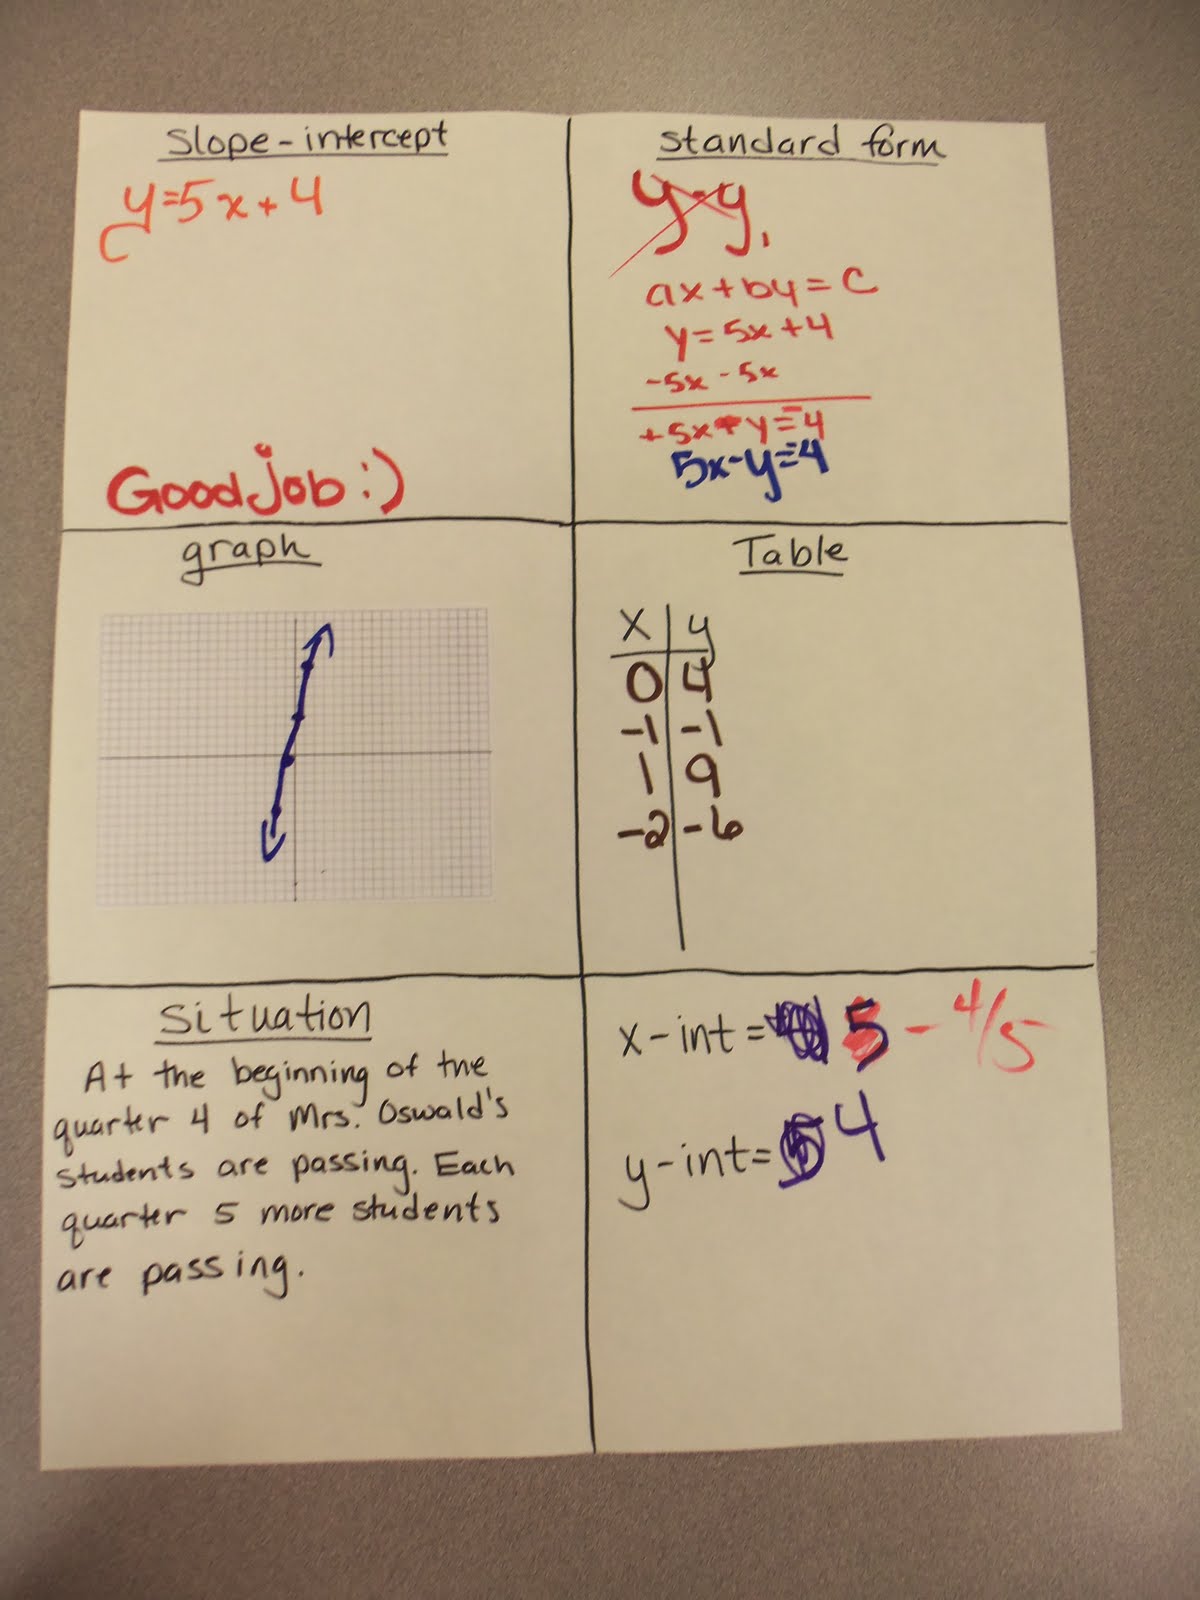 Slope-intercept
y=5x+4
Good job :)
Standard form
y-y₁
ax+by=c
y=5x+4
-5x -5x
+5x-y=-4
5x-y=-4
graph
Table
x y
0 4
-1 -1
1 9
-2 -6
Situation
At the beginning of the
quarter 4 of Mrs. Oswald's
students are passing. Each
quarter 5 more students
are passing.
x-int= 5 -4/5
y-int= 4